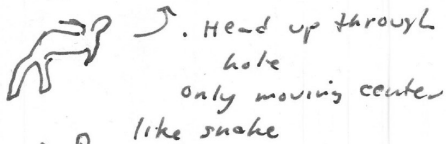 . Head up through
hole
only moving center
like snake